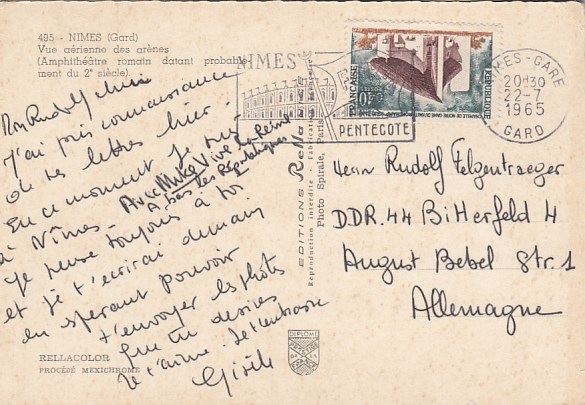 495 - NIMES (Gard)
Vue aérienne des arènes
(Amphithéâtre romain datant probable-
ment du 2e siècle).
Mon Rudolf chéri
J'ai pris connaissance
de tes lettres hier.
En ce moment je suis
à Nîmes. Avec Mike Vive la Reine
A bas les Républiques
Je pense toujours à toi
et je t'écrirai demain
en espérant pouvoir
t'envoyer les photos
que tu desires
Je t'aime. Je t'embrasse
Gisèle
RELLACOLOR
PROCÉDÉ MEXICHROME
EDITIONS Rella
Reproduction interdite - Fabrication
Photo Spirale, Paris
DIPLOME
NIMES
PENTECOTE
REPUBLIQUE
FRANÇAISE
0,40
NIMES-GARE
20H30
22-7
1965
GARD
Herrn Rudolf Felgentraeger
D.D.R. 44 Bitterfeld 4
August Bebel Str. 1
Allemagne